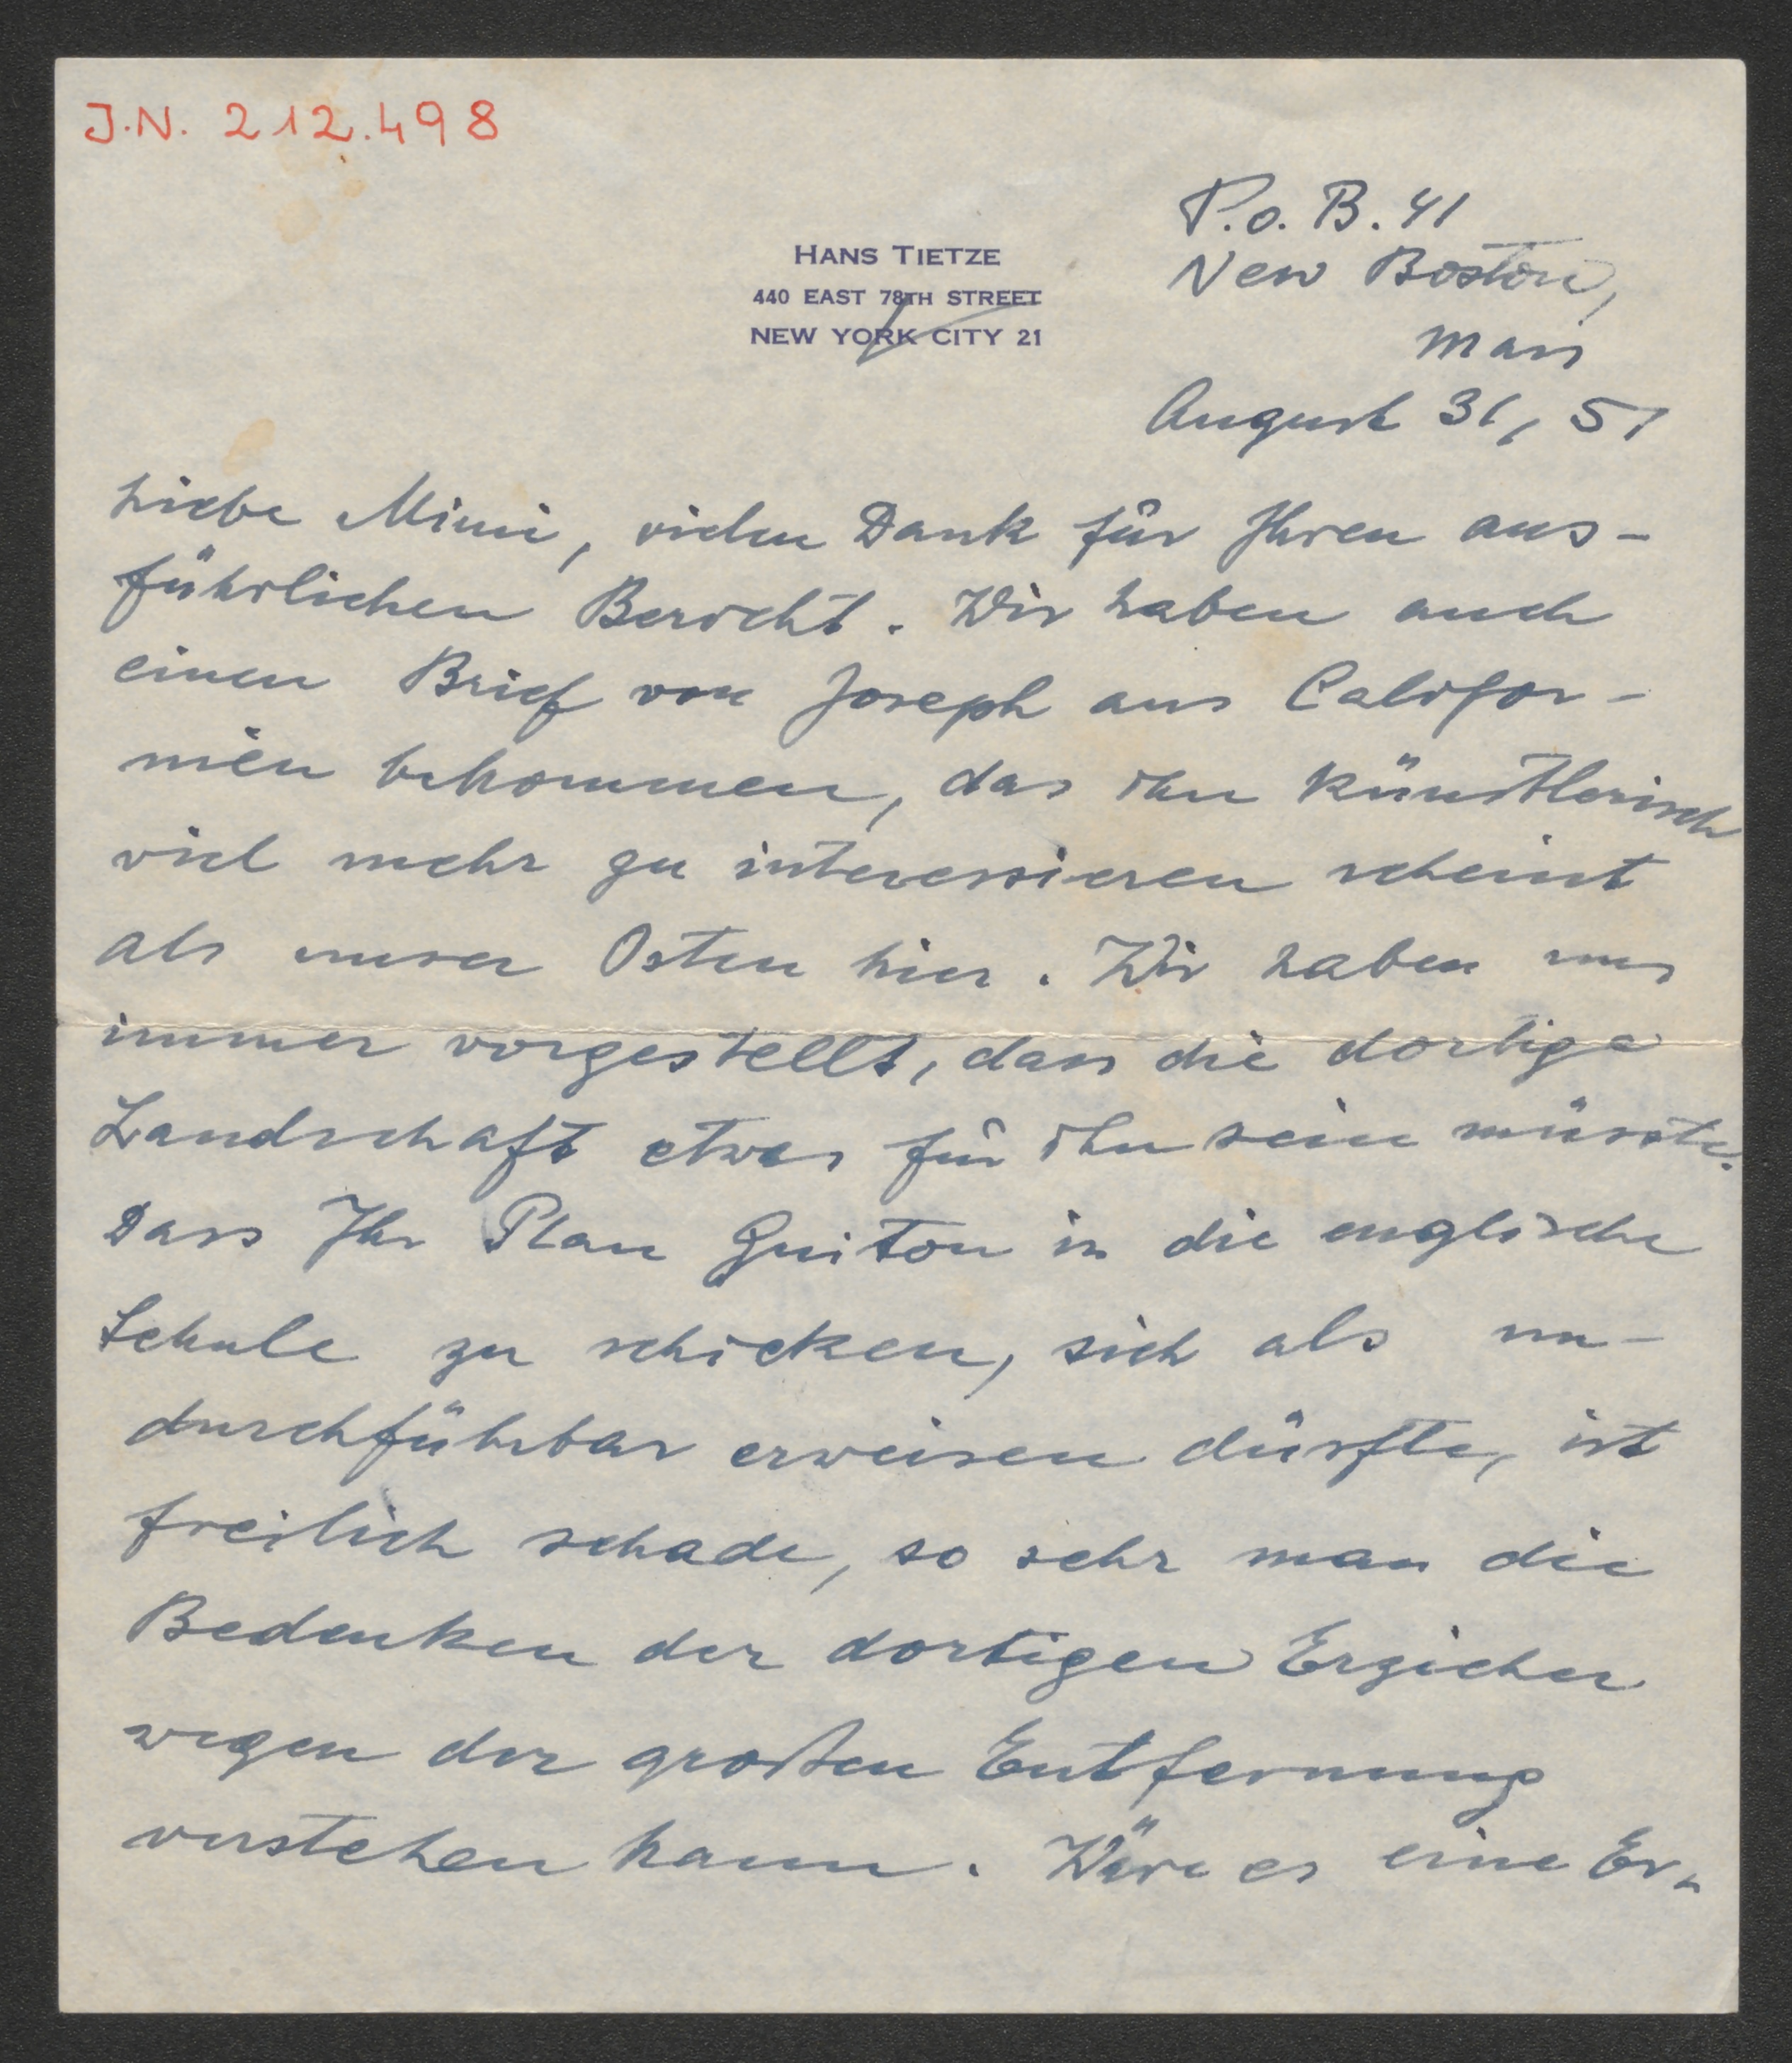 J.N. 212.498
P.o. B. 41
HANS TIETZE
New Boston,
440 EAST 78TH STREET
NEW YORK CITY 21
Mass
August 31, 51
Liebe Mimi, vielen Dank für Ihren aus-
führlichen Bericht. Wir haben auch
einen Brief von Joseph aus Califor-
nien bekommen, das ihn künstlerisch
viel mehr zu interessieren scheint
als unser Osten hier. Wir haben uns
immer vorgestellt, dass die dortige
Landschaft etwas für ihn sein müsste.
Dass Ihr Plan Guiton in die englische
Schule zu schicken, sich als un-
durchführbar erweisen dürfte, ist
freilich schade, so sehr man die
Bedenken der dortigen Erzieher
wegen der großen Entfernung
verstehen kann. Wäre es eine Er-